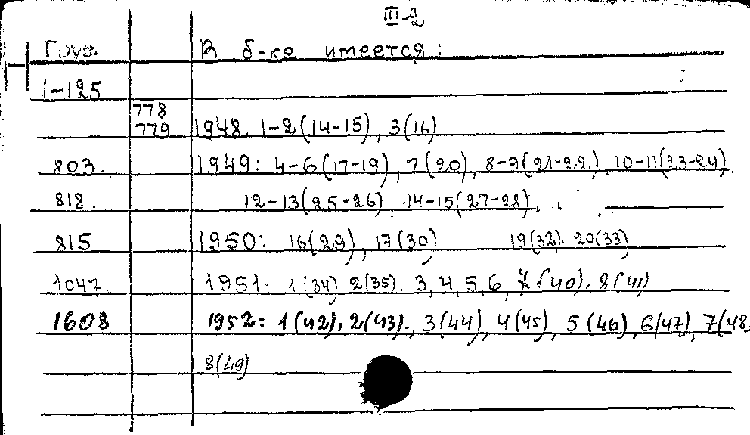 III-2
Груз. В б-ке имеется:
1-125
778
779 1948. 1-2(14-15), 3(16)
803. 1949: 4-6(17-19), 7(20), 8-9(21-22.) 10-11(23-24)
818. 12-13(25-26) 14-15(27-28),
815 1950: 16(29), 17(30) 19(32). 20(33)
1047 1951. 1(34) 2(35). 3, 4, 5, 6, 7(40). 8(41)
1608 1952: 1(42), 2(43). 3(44), 4(45), 5(46), 6(47), 7(48.
8(49)